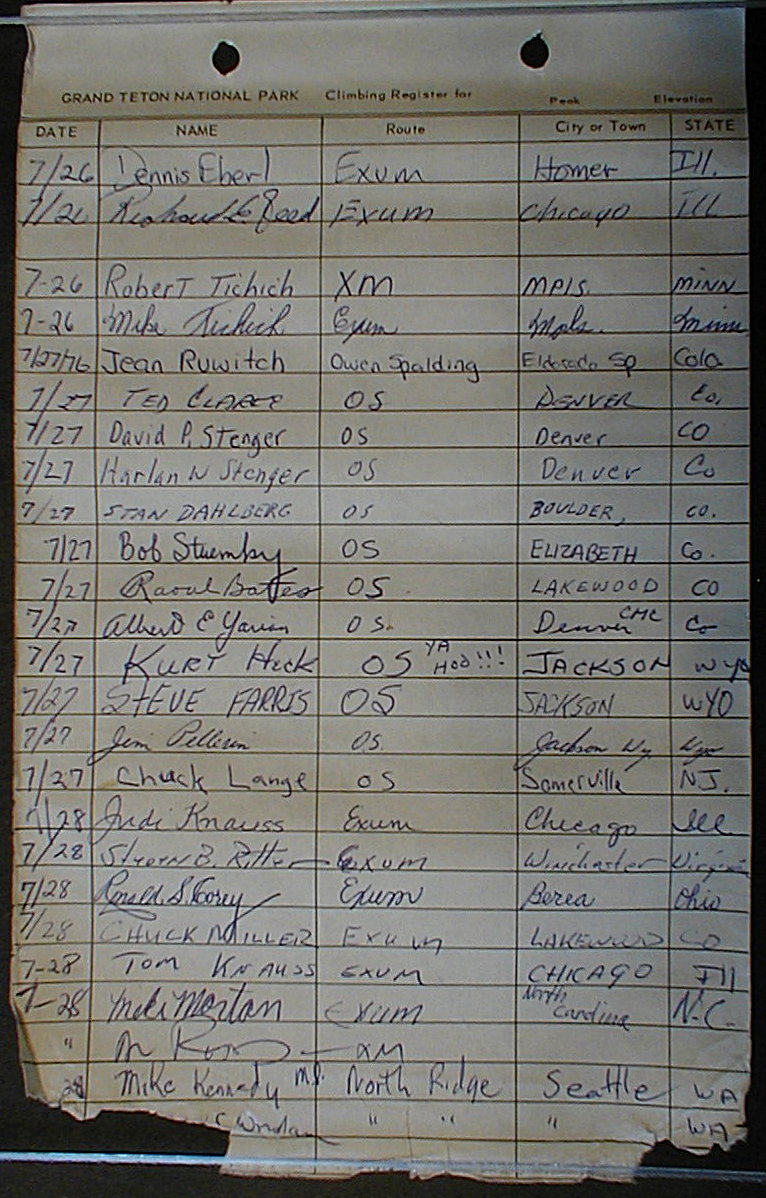 GRAND TETON NATIONAL PARK Climbing Register for Peak Elevation
DATE NAME Route City or Town STATE
7/26 Dennis Eberl Exum Homer Ill.
7/26 Richard E Reed Exum Chicago Ill
7-26 Robert Tichich XM MPLS. MINN
7-26 Mike Tichich Exum Mpls. Minn
7/27/76 Jean Ruwitch Owen Spalding Eldorado Sp Colo
7/27 TED OS DENVER Co.
7/27 David P. Stenger OS Denver CO
7/27 Harlan W Stenger OS Denver Co
7/27 STAN DAHLBERG OS BOULDER, CO.
7/27 Bob OS ELIZABETH Co.
7/27 Raoul Bates OS LAKEWOOD CO
7/27 Albert E OS. Denver CMC Co
7/27 KURT Hick OS YA HOO!!! JACKSON WYO
7/27 STEVE FARRIS OS JACKSON WYO
7/27 Jim Pellerin OS. Jackson Wy Wyo
7/27 Chuck Lange OS Somerville N.J.
7/28 Judi Knauss Exum Chicago Ill
7/28 Steven B. Ritter Exum Winchester Virginia
7/28 Ronald S. Corey Exum Berea Ohio
7/28 CHUCK MILLER EXUM LAKEWOOD CO
7-28 TOM KNAUSS EXUM CHICAGO Ill
7-28 Mike Morton Exum North Carolina N.C.
" XM
28 Mike Kennedy M.D. North Ridge Seattle WA
C " " " WA